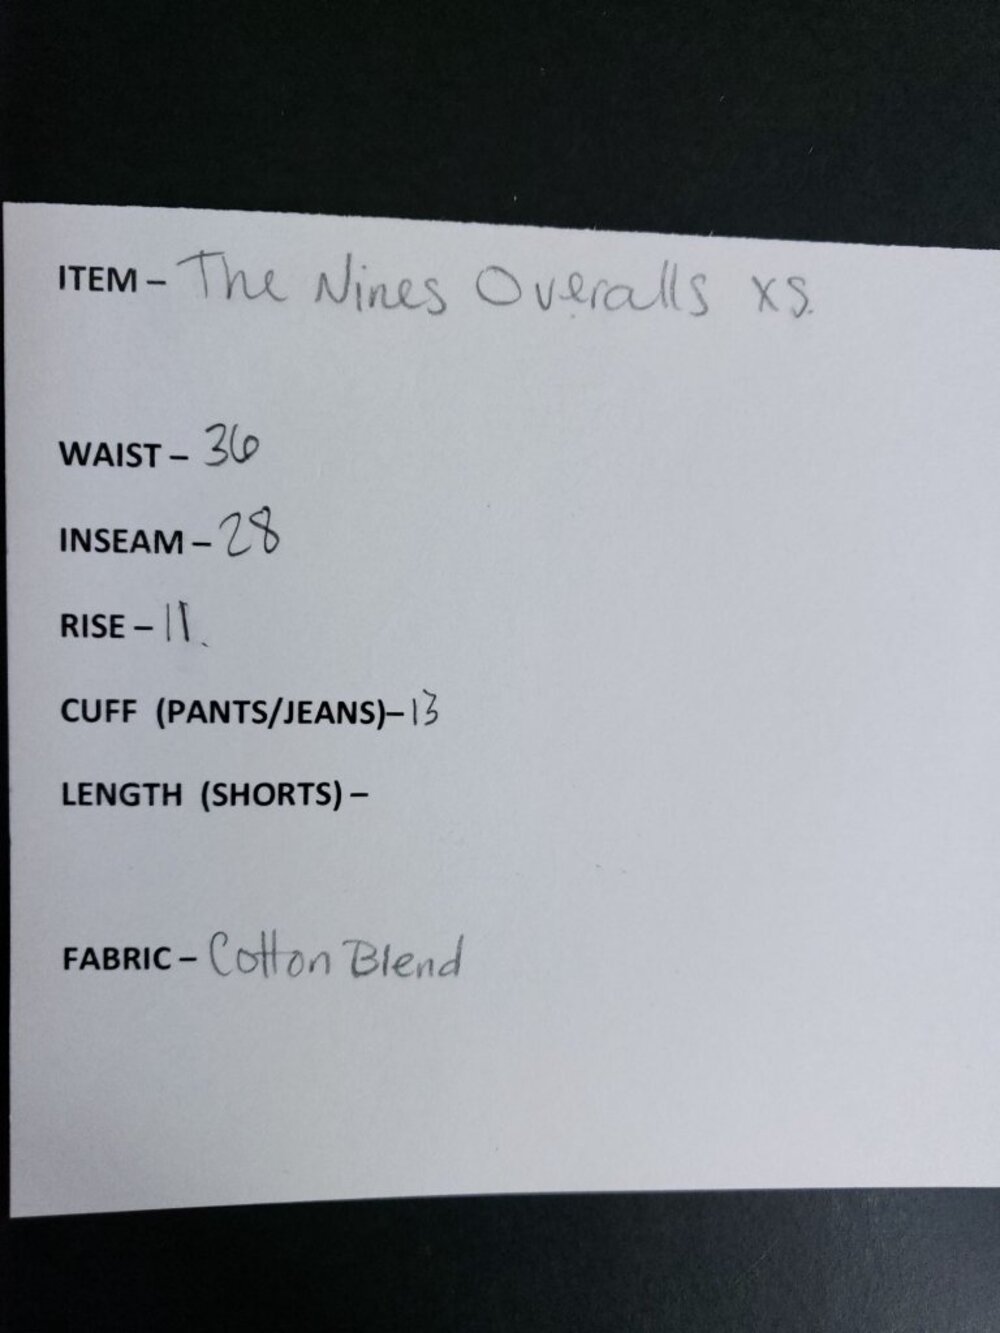 ITEM – The Nines Overalls XS.
WAIST – 36
INSEAM – 28
RISE – 11.
CUFF (PANTS/JEANS)– 13
LENGTH (SHORTS) –
FABRIC – Cotton Blend